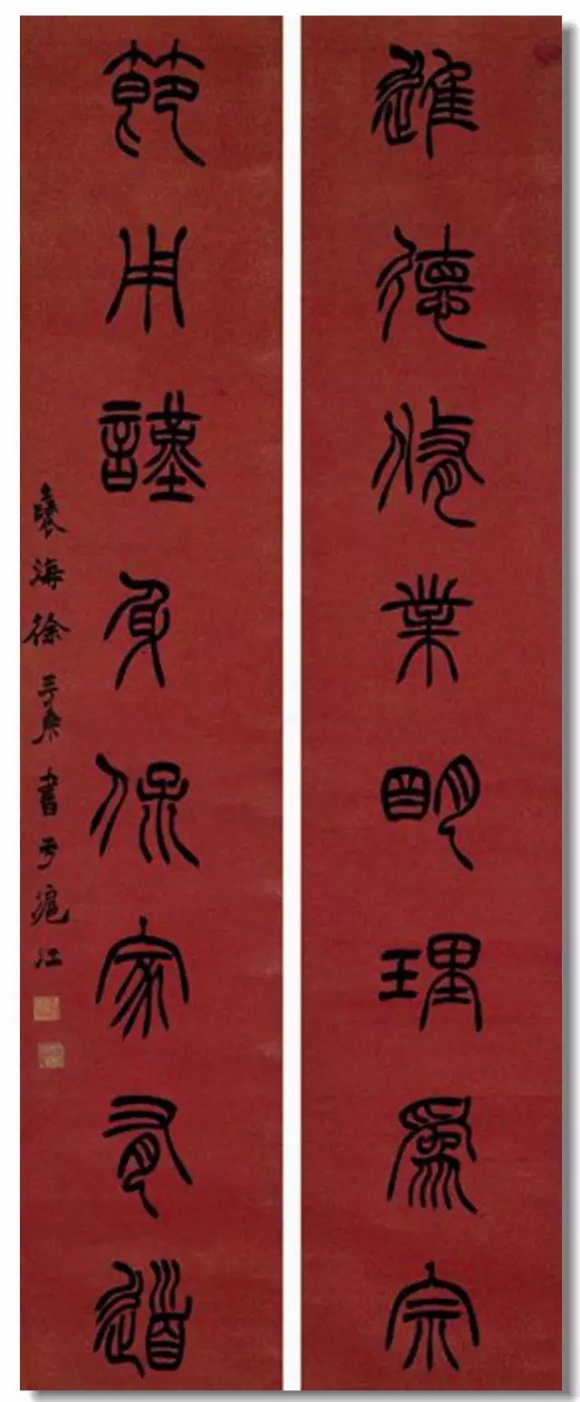 進德脩業明理爲宗
節用謹身保家有道
褎海徐三庚書于滬江